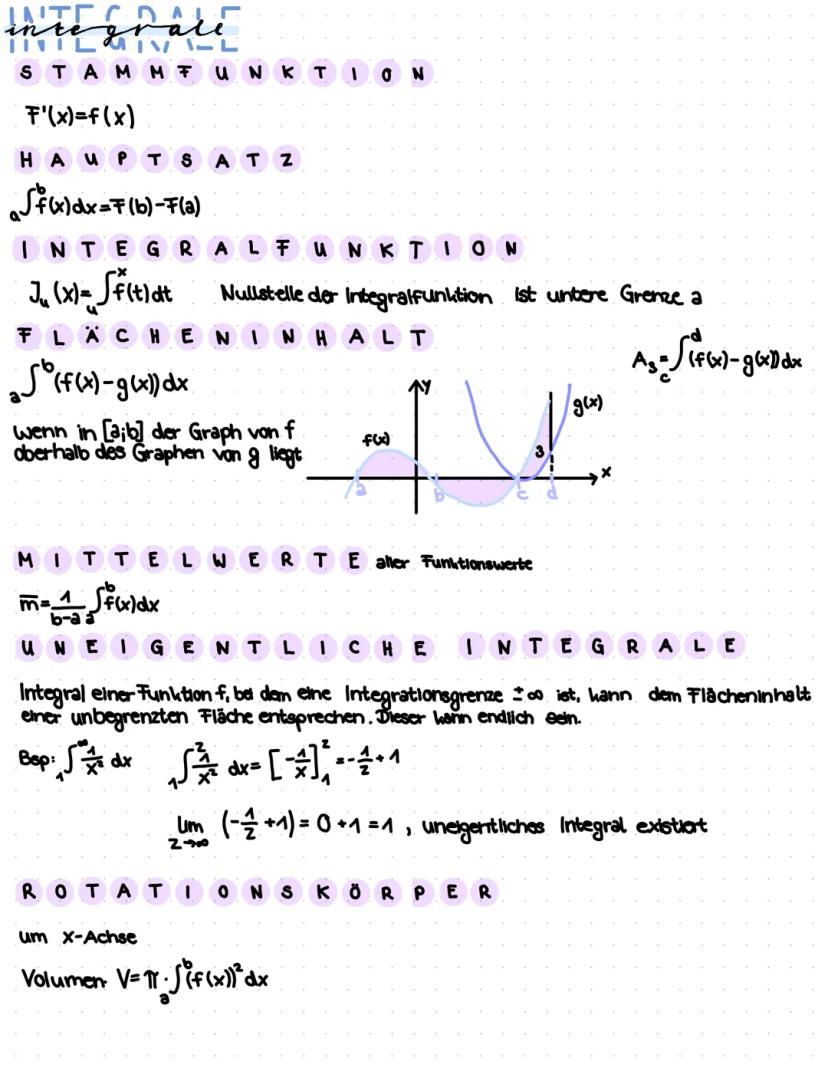 INTEGRALE
integrale
STAMMFUNKTION
F'(x)=f(x)
HAUPTSATZ
a∫b f(x)dx=F(b)-F(a)
INTEGRALFUNKTION
Ju(x)= u∫x f(t)dt Nullstelle der Integralfunktion ist untere Grenze a
FLÄCHENINHALT
a∫b (f(x)-g(x))dx
A3= c∫d (f(x)-g(x))dx
wenn in [a;b] der Graph von f
oberhalb des Graphen von g liegt
y
g(x)
f(x)
3
x
a b c d
MITTELWERTE aller Funktionswerte
m̅= 1/(b-a) a∫b f(x)dx
UNEIGENTLICHE INTEGRALE
Integral einer Funktion f, bei dem eine Integrationsgrenze ±∞ ist, kann dem Flächeninhalt
einer unbegrenzten Fläche entsprechen. Dieser kann endlich sein.
Bsp: 1∫∞ 1/x² dx 1∫z 1/x² dx= [-1/x]1z = -1/z+1
lim z→∞ (-1/z+1)= 0+1=1, uneigentliches Integral existiert
ROTATIONSKÖRPER
um x-Achse
Volumen V=π· a∫b (f(x))² dx